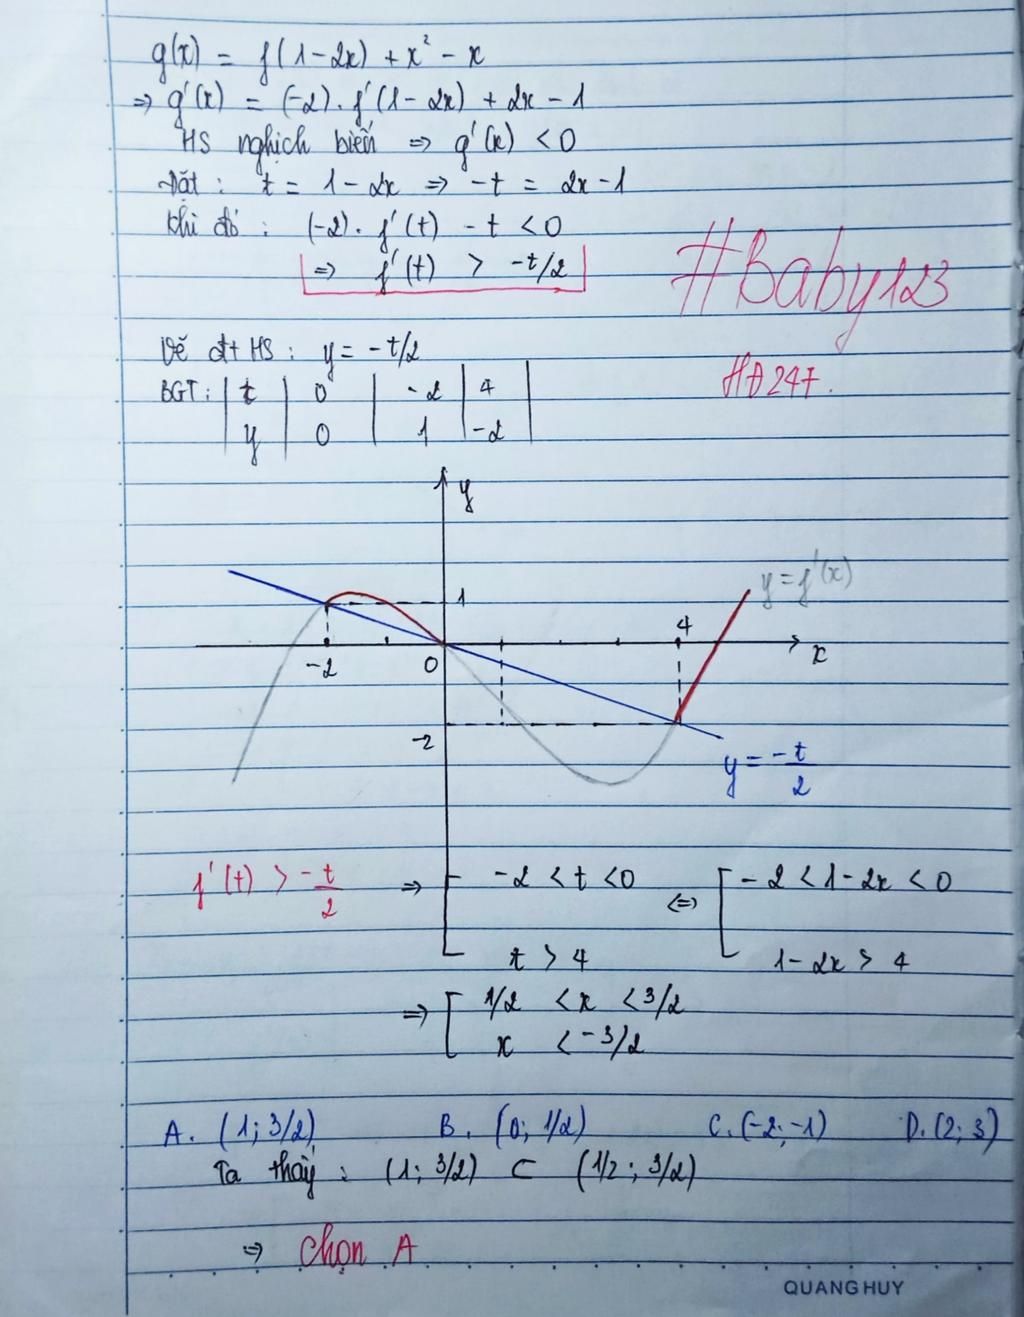 g(x) = f(1-2x) + x² - x
=> g'(x) = (-2). f'(1-2x) + 2x - 1
HS nghịch biến => g'(x) < 0
Đặt : t = 1-2x => -t = 2x-1
Khi đó : (-2). f'(t) - t < 0
=> f'(t) > -t/2
#Baby123
HĐ247.
Vẽ đt HS : y = -t/2
BGT : | t | 0 | -2 | 4 |
| y | 0 | 1 | -2 |
y
y = f'(x)
1
4
-2
0
x
-2
y = -t/2
f'(t) > -t/2 => [ -2 < t < 0 <=> [ -2 < 1-2x < 0
t > 4 1-2x > 4
=> [ 1/2 < x < 3/2
x < -3/2
A. (1; 3/2) B. (0; 1/2) C. (-2; -1) D. (2; 3)
Ta thấy : (1; 3/2) ⊂ (1/2; 3/2)
=> Chọn A
QUANG HUY